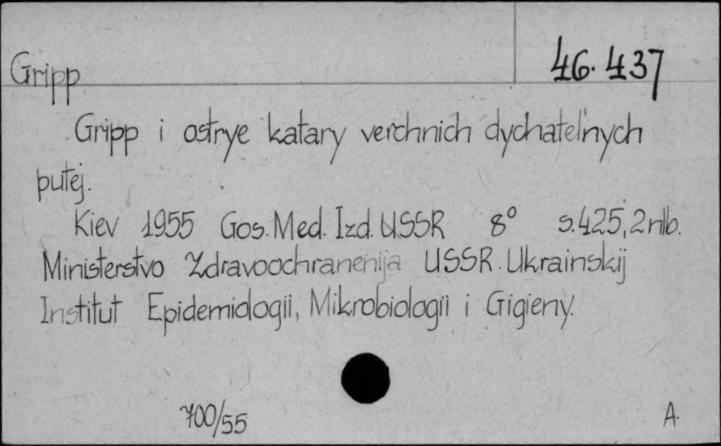 46.437
Gripp
Gripp i ostrye katary verchnich dychatel'nych
putej.
Kiev 1955 Gos. Med. Izd. USSR 8° s.425, 2nlb.
Ministerstvo Zdravoochranenija USSR. Ukrainskij
Institut Epidemiologii, Mikrobiologii i Gigieny.
700/55 A.